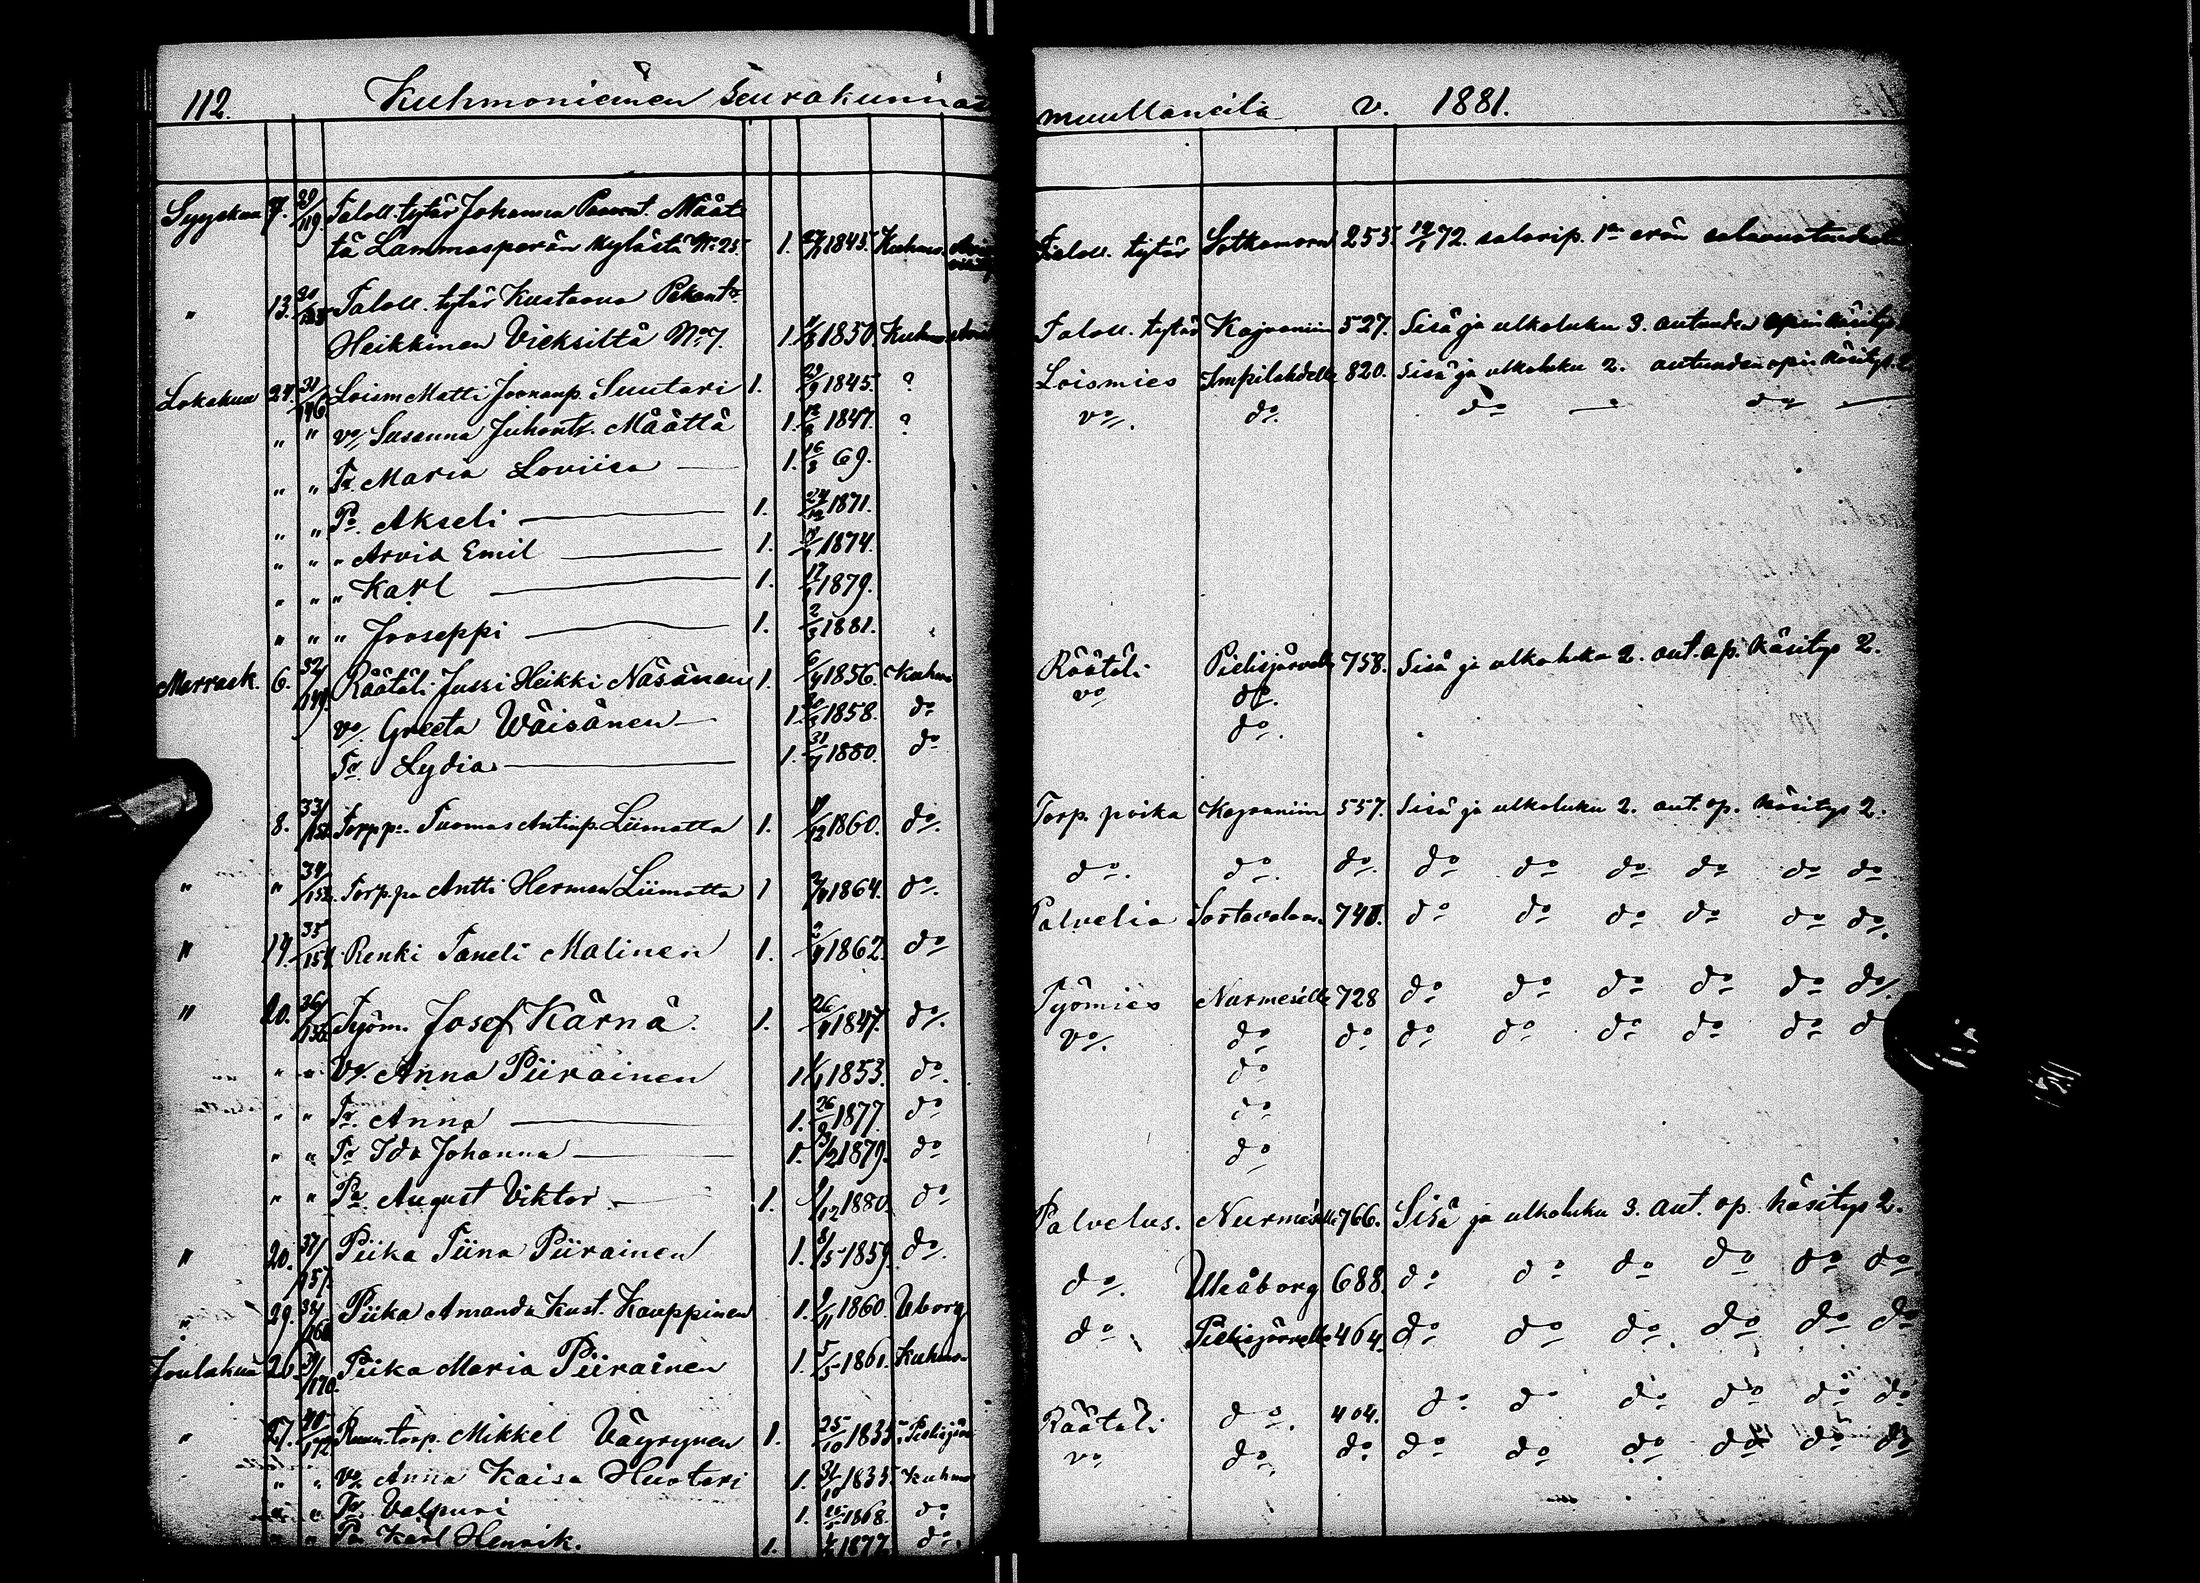 112. Kuhmoniemen seurakunnas muuttaneita v. 1881.
Syyskuu 7. 29/119. Taloll. tytär Johanna Määt
tä Lammasperän kylästä No 25. 1. 1845. Kuhmo. Taloll. tytär Sotkamoon 255. 72.
" 13. 30/ Taloll. tytär Kustaava Pekant.
Heikkinen Vieksiltä No 7. 1. 1850. Kuhmo Taloll. tytär Kajaaniin 527. Sisä ja ulkoluku 3. autuuden opin käsitys
Lokakuu 24. 31/146. Loism Matti Joonanp. Suutari 1. 29/9 1845. ? Loismies Impilahdelle 820. Sisä ja ulkoluku 2. autuuden opin käsitys. 2.
" " vo/. Susanna Juhont. Määttä 1. 1847. ? vo/. do. do — do —
" " Tr. Maria Loviisa — 1. 16/3 69.
" " Po. Akseli — 1. 24/12 1871.
" " " Arvid Emil — 1. 1874.
" " " Karl — 1. 17/1 1879.
" " " Jooseppi — 1. 2/3 1881.
Marrask. 6. 32/149. Räätäli Jussi Heikki Näsänen 1. 6/4 1856. Kuhmo Räätäli Pielisjärvelle 758. Sisä ja ulkoluku 2. aut. op. käsitys 2.
vo/. Greeta Wäisänen — 1. 1858. do vo do.
Tr. Lydia — 1. 31/7 1880. do do.
8. 33/152. Torp po. Tuomas Antinp. Liimatta 1. 1860. do. Torp. poika Kajaaniin 557. Sisä ja ulkoluku 2. aut. op. käsitys 2.
" " 34/153. Torp. po Antti Herman Liimatta 1 1864. do. do. do. do. do do do do do do
" 14. 35/154. Renki Taneli Malinen 1. 1862. do Palvelia Sortavalaan. 740. do do do do do do.
" 20. 36/156. Työm. Josef Kärnä. 1. 26/4 1847. do. Työmies Nurmeselle 728 do do do do do do/.
" " Vo/. Anna Piirainen 1 1853. do. vo/. do do do do do do do do
" " Tr. Anna — 1. 26/ 1877. do do
" " Tr Ida Johanna — 1. 1879. do do
" " Po. August Viktor — 1. 1/12 1880. do do
" 20. 37/157. Piika Tiina Piirainen 1. 8/5 1859. do. Palvelus. Nurmeselle 766. Sisä ja ulkoluku 3. aut. op. käsitys 2.
" 29. 38/160 Piika Amanda Kust. Kauppinen 1. 9/11 1860. Uborg do. Uleåborg 688. do do do do do do
Joulukuu 26 39/170. Piika Maria Piirainen 1. 5/5 1861. Kuhmo. do Pielisjärvelle 464. do do do do do do
" 27. 40/172. Ruun. torp. Mikkel Väyrynen 1. 25/10 1835. Pielisjär. Räätäli do. 404. do do do do do do
" " vo/. Anna Kaisa Huotari 1. 1835. Kuhmo vo do. do do do do do do do
" " Tr. Valpuri 1. 1868. do
" " Po Karl Henrik. 1. 1877. do.